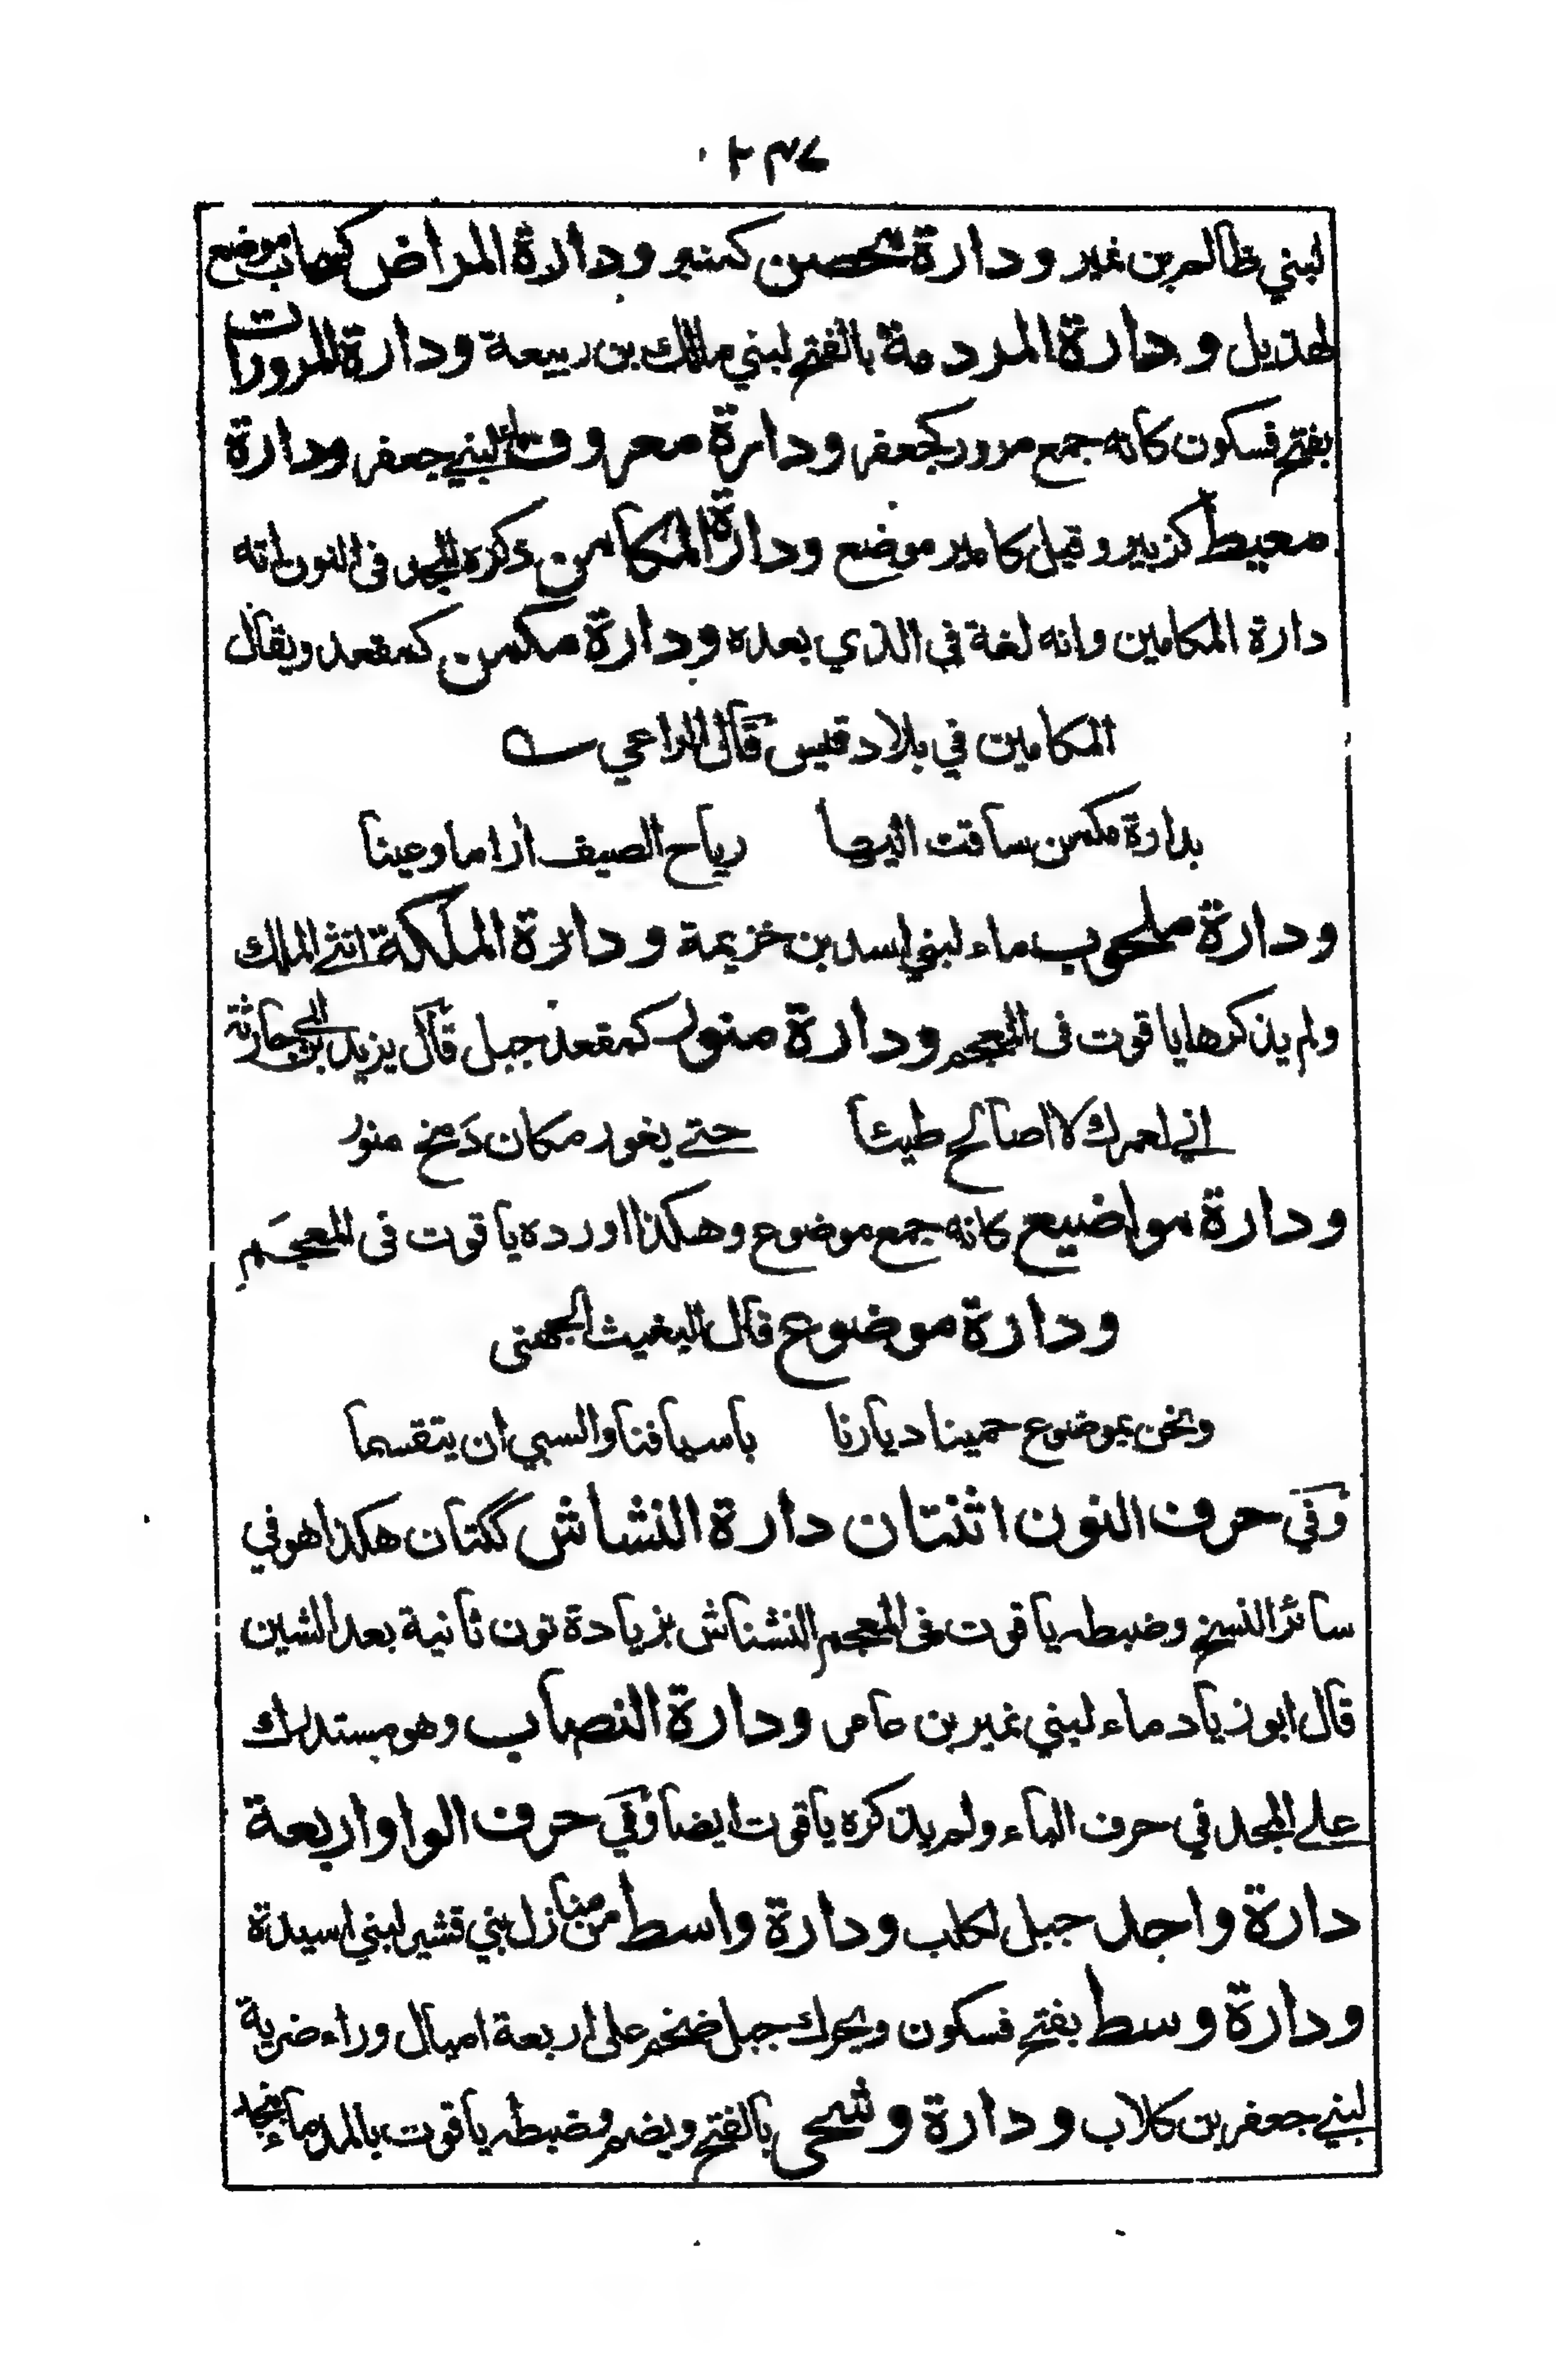 ٢٣٧
لبني ظالم بن نمير ودارة محصن كمنبر ودارة المراض كسحاب موضع
لهذيل ودارة المردمة بالفتح لبني مالك بن ربيعة ودارة المرورات
بفتح فسكون كانه جمع مرور كجعفر ودارة معروف ماء لبني جعفر ودارة
معيط كزبير وقيل كامير موضع ودارة المكامن ذكره المجد في النون انه
دارة المكامين وانه لغة في الذي بعده ودارة مكمن كمقعد ويقال
المكامين في بلاد قيس قال الراعي
بدارة مكمن ساقت اليها رياح الصيف اراما وعينا
ودارة ملحوب ماء لبني اسد بن خزيمة ودارة الملكة انثى الملك
ولم يذكرها ياقوت في المعجم ودارة منور كمقعد جبل قال يزيد بن ابي حارثة
اني لعمرك لا اصالح طيئا حتى يغور مكان دمخ منور
ودارة مواضيع كانه جمع موضوع وهكذا اورده ياقوت في المعجم
ودارة موضوع قال البغيث الجهني
ونحن بموضوع حمينا ديارنا باسيافنا والسبي ان يتقسما
وفي حرف النون اثنتان دارة النشاش ككتان هكذا هو في
سائر النسخ وضبطه ياقوت في المعجم النشناش بزيادة نون ثانية بعد الشين
قال ابو زياد ماء لبني نمير بن عامر ودارة النصاب وهو مستدرك
على المجد في حرف الباء ولم يذكره ياقوت ايضا وفي حرف الواو اربعة
دارة واحد جبل لكلب ودارة واسط من منازل بني قشير لبني اسيدة
ودارة وسط بفتح فسكون ويحرك جبل ضخم على اربعة اميال وراء ضرية
لبني جعفر بن كلاب ودارة وشحى بالفتح ويضم وضبطه ياقوت بالمد ماء بنجد